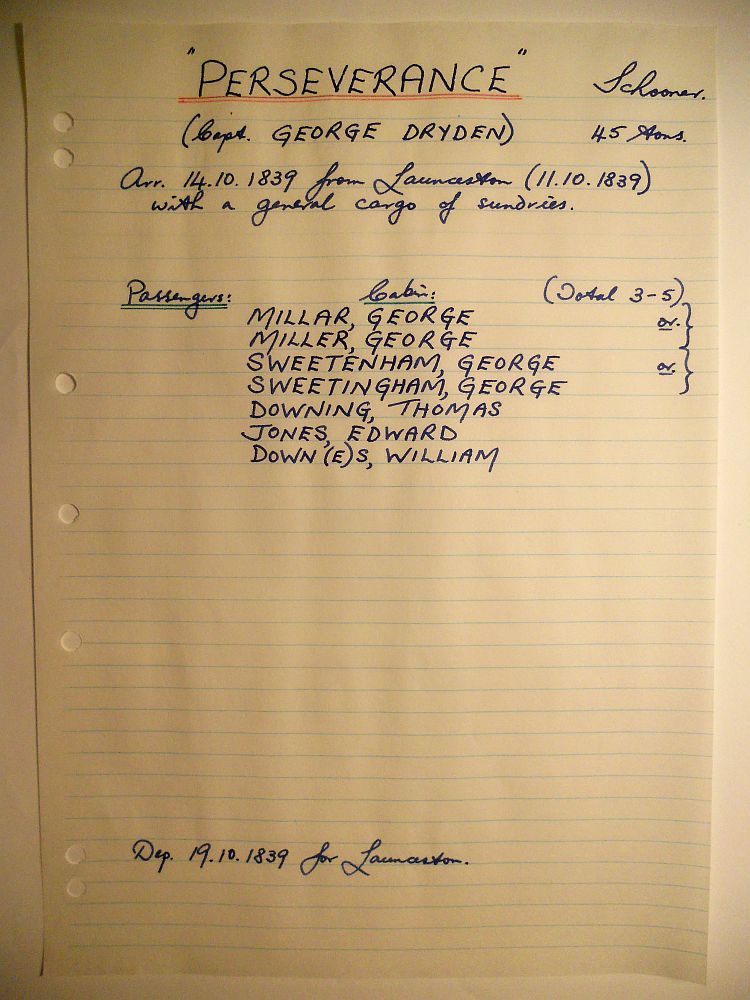 "PERSEVERANCE" Schooner.
(Capt. GEORGE DRYDEN) 45 tons.
Arr. 14.10.1839 from Launceston (11.10.1839)
with a general cargo of sundries.
Passengers: Cabin: (Total 3-5)
MILLAR, GEORGE or. }
MILLER, GEORGE
SWEETENHAM, GEORGE or. }
SWEETINGHAM, GEORGE
DOWNING, THOMAS
JONES, EDWARD
DOWN(E)S, WILLIAM
Dep. 19.10.1839 for Launceston.